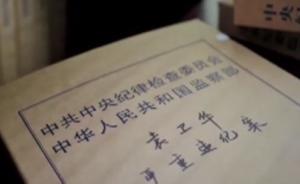 中共中央纪律检查委员会
中华人民共和国监察部
袁卫华
严重违纪案